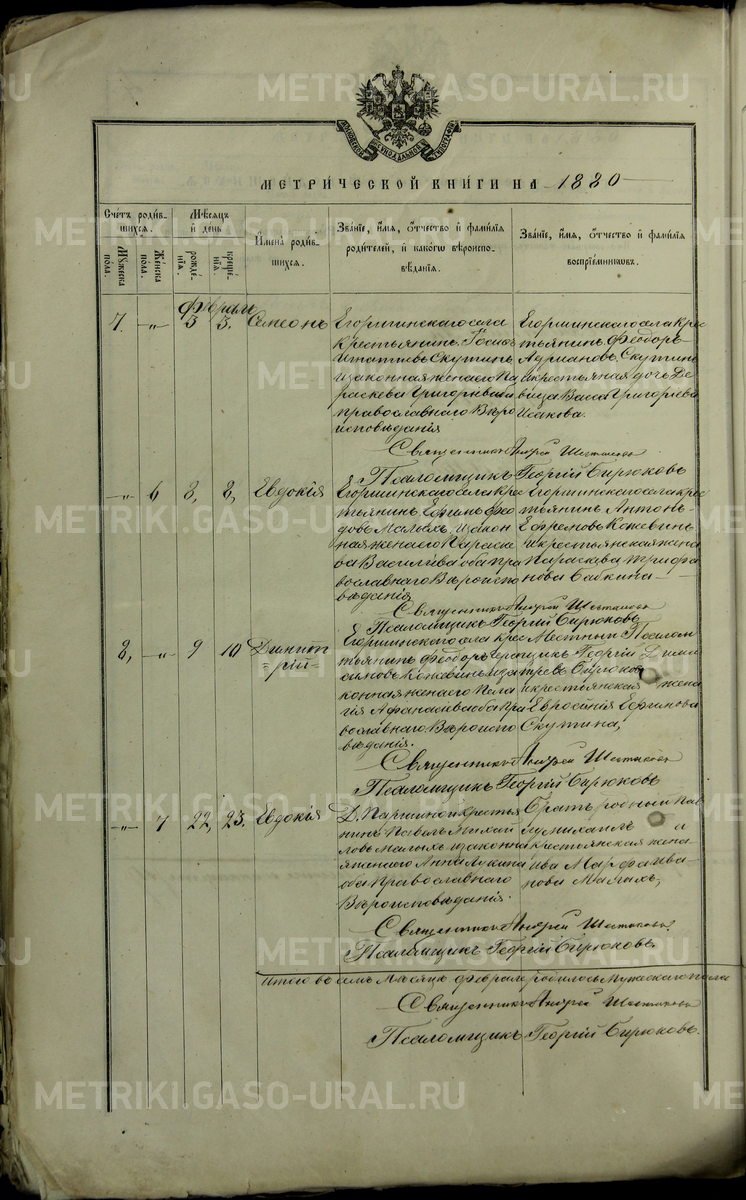 METRIKI.GASO-URAL.RU
МЕТРИЧЕСКОЙ КНИГИ НА 1880
Счетъ родив- Мѣсяцъ Имена родив- Званіе, имя, отчество и фамилія Званіе, имя, отчество и фамилія
шихся. и день шихся. родителей, и какого вѣроиспо- воспріемниковъ.
Мужеска пола. Женска пола. рожде- нія. креще- нія. вѣданія.
7. „ 3 3. Симеонъ
Егоршинскаго села
крестьянинъ
Игнатіевъ Скутинъ
и законная жена его Па
раскева Григорьева оба
православнаго Вѣро
исповѣданія
Егоршинскаго села крес
тьянинъ Феодоръ
Адріановъ Скутинъ
и крестьянская дочь Де
вица Васса Григорьева
Исакова.
Священникъ Андрей
Псаломщикъ Георгій Бирюковъ
„ 6 8, 8, Евдокія
Егоршинскаго села крес
тьянинъ Ефимъ Фео
довъ Малыхъ, и закон
ная жена его Параске
ва Васильева оба пра
вославнаго Вѣроиспо
вѣданія
Егоршинскаго села крес
тьянинъ Антонъ
Ефремовъ Кожевинъ
и крестьянская жена
Параскева Трифа
нова Бабкина
Священникъ Андрей
Псаломщикъ Георгій Бирюковъ
8, „ 9 10 Димит
рій
Егоршинскаго села крес
тьянинъ Феодоръ
симовъ Кожевинъ и за
конная жена его Пела
гія Афанасіева оба пра
вославнаго Вѣроиспо
вѣданія.
Местный Псалом
щикъ Георгій Дими
тревъ Бирюковъ
и крестьянская жена
Евросинія Ефимова
Скутина,
Священникъ Андрей
Псаломщикъ Георгій Бирюковъ
„ 7 22, 23. Евдокія
Д. Паршиной крестья
нинъ Павелъ Михай
ловъ Малыхъ и законна
я жена его Анна Лукина
оба Православнаго
Вѣроисповѣданія.
Братъ родный
Михаилъ и
крестьянская жена
Марфа Ива
нова Малыхъ,
Священникъ Андрей
Псаломщикъ Георгій Бирюковъ.
Итого въ семъ Мѣсяцѣ Февралѣ родилось Мужескаго пола
Священникъ Андрей
Псаломщикъ Георгій Бирюковъ.